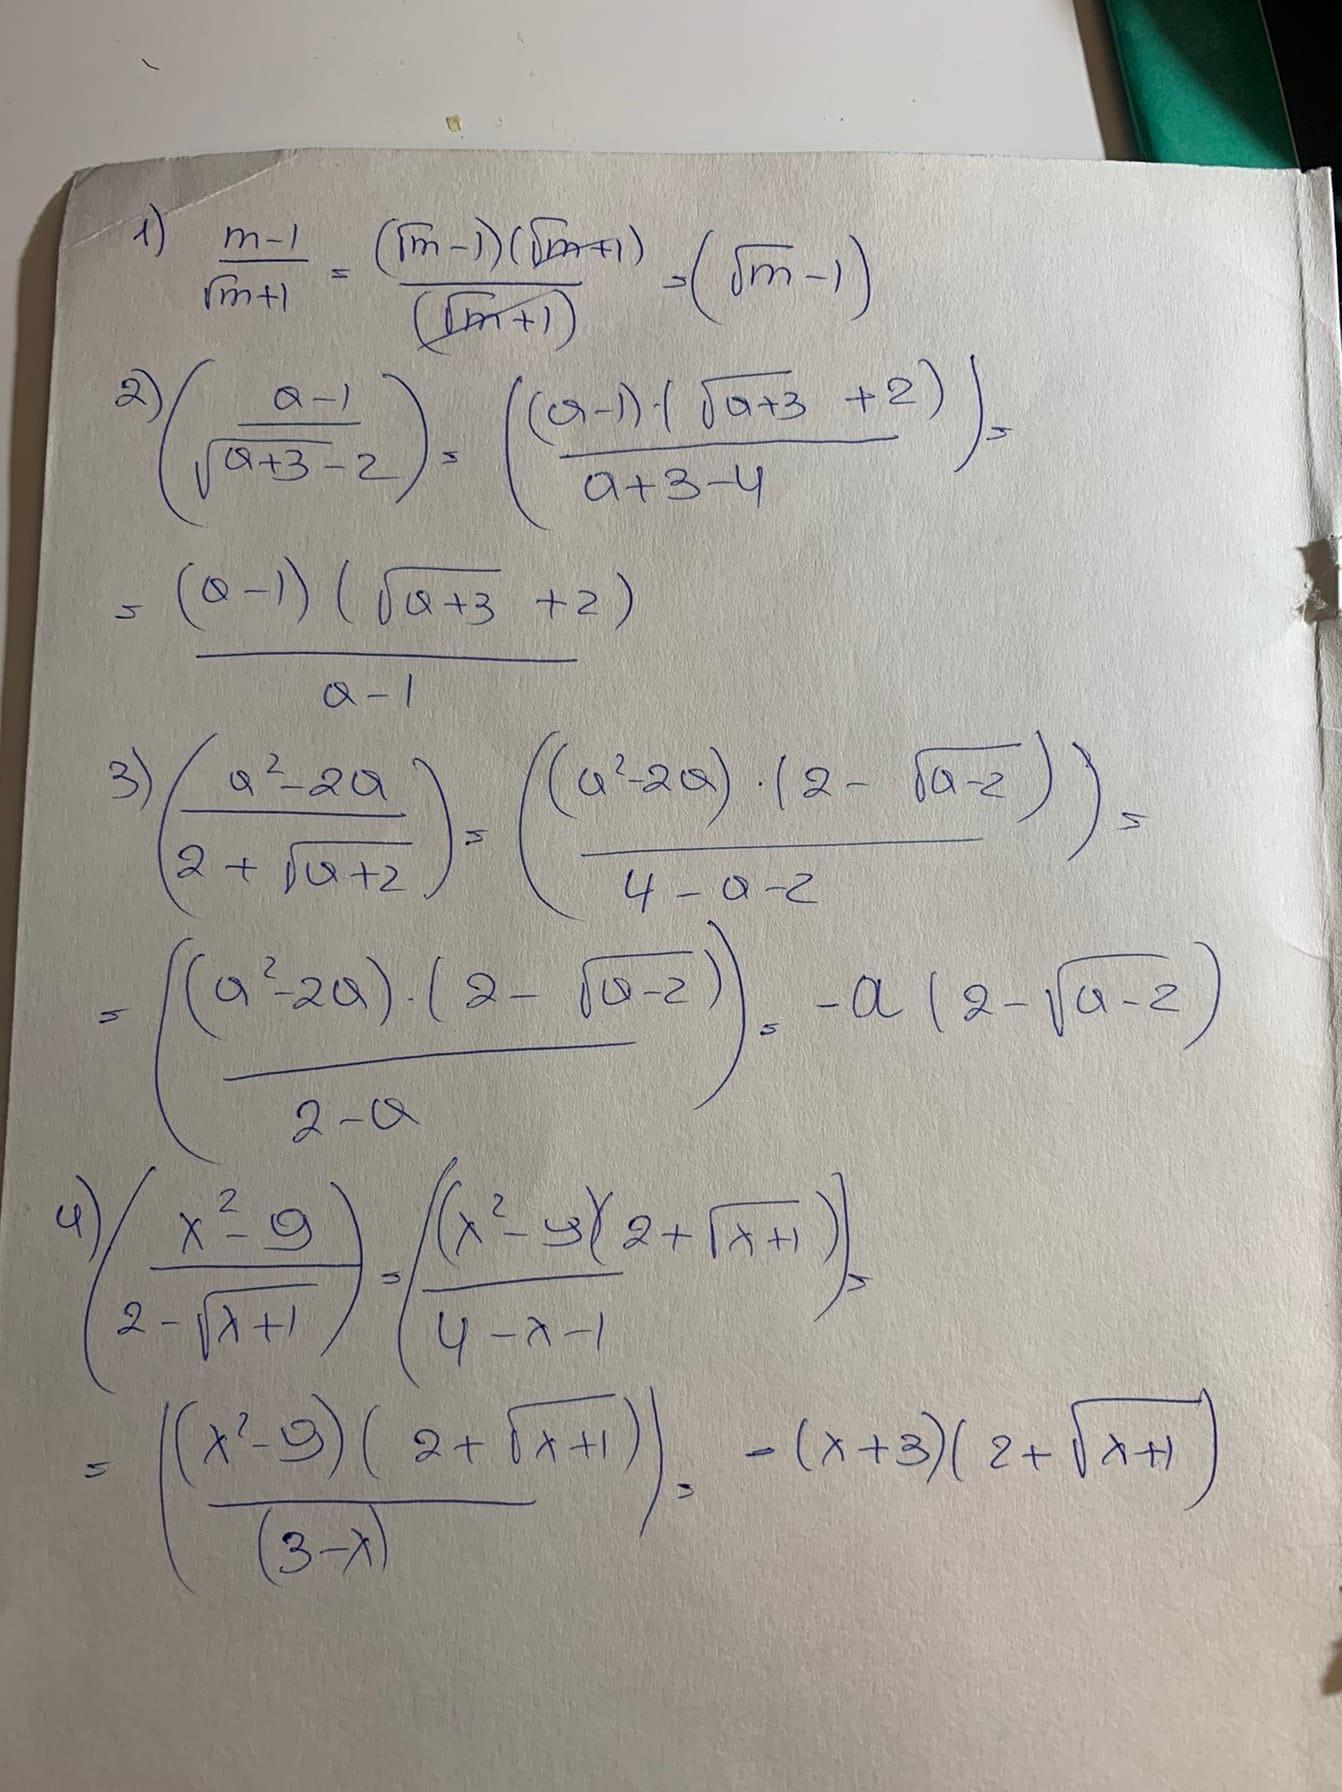 1) (m-1)/(√m+1) = ((√m-1)(√m+1))/((√m+1)) = (√m-1)
2) ((a-1)/(√(a+3)-2)) = (((a-1)·(√(a+3) +2))/(a+3-4)) =
= ((a-1)(√(a+3) +2))/(a-1)
3) ((a²-2a)/(2+√(a+2))) = (((a²-2a)·(2-√(a-2)))/(4-a-2)) =
= (((a²-2a)·(2-√(a-2)))/(2-a)) = -a(2-√(a-2))
4) ((x²-9)/(2-√(x+1))) = (((x²-9)(2+√(x+1)))/(4-x-1)) =
= (((x²-9)(2+√(x+1)))/((3-x))) = -(x+3)(2+√(x+1))